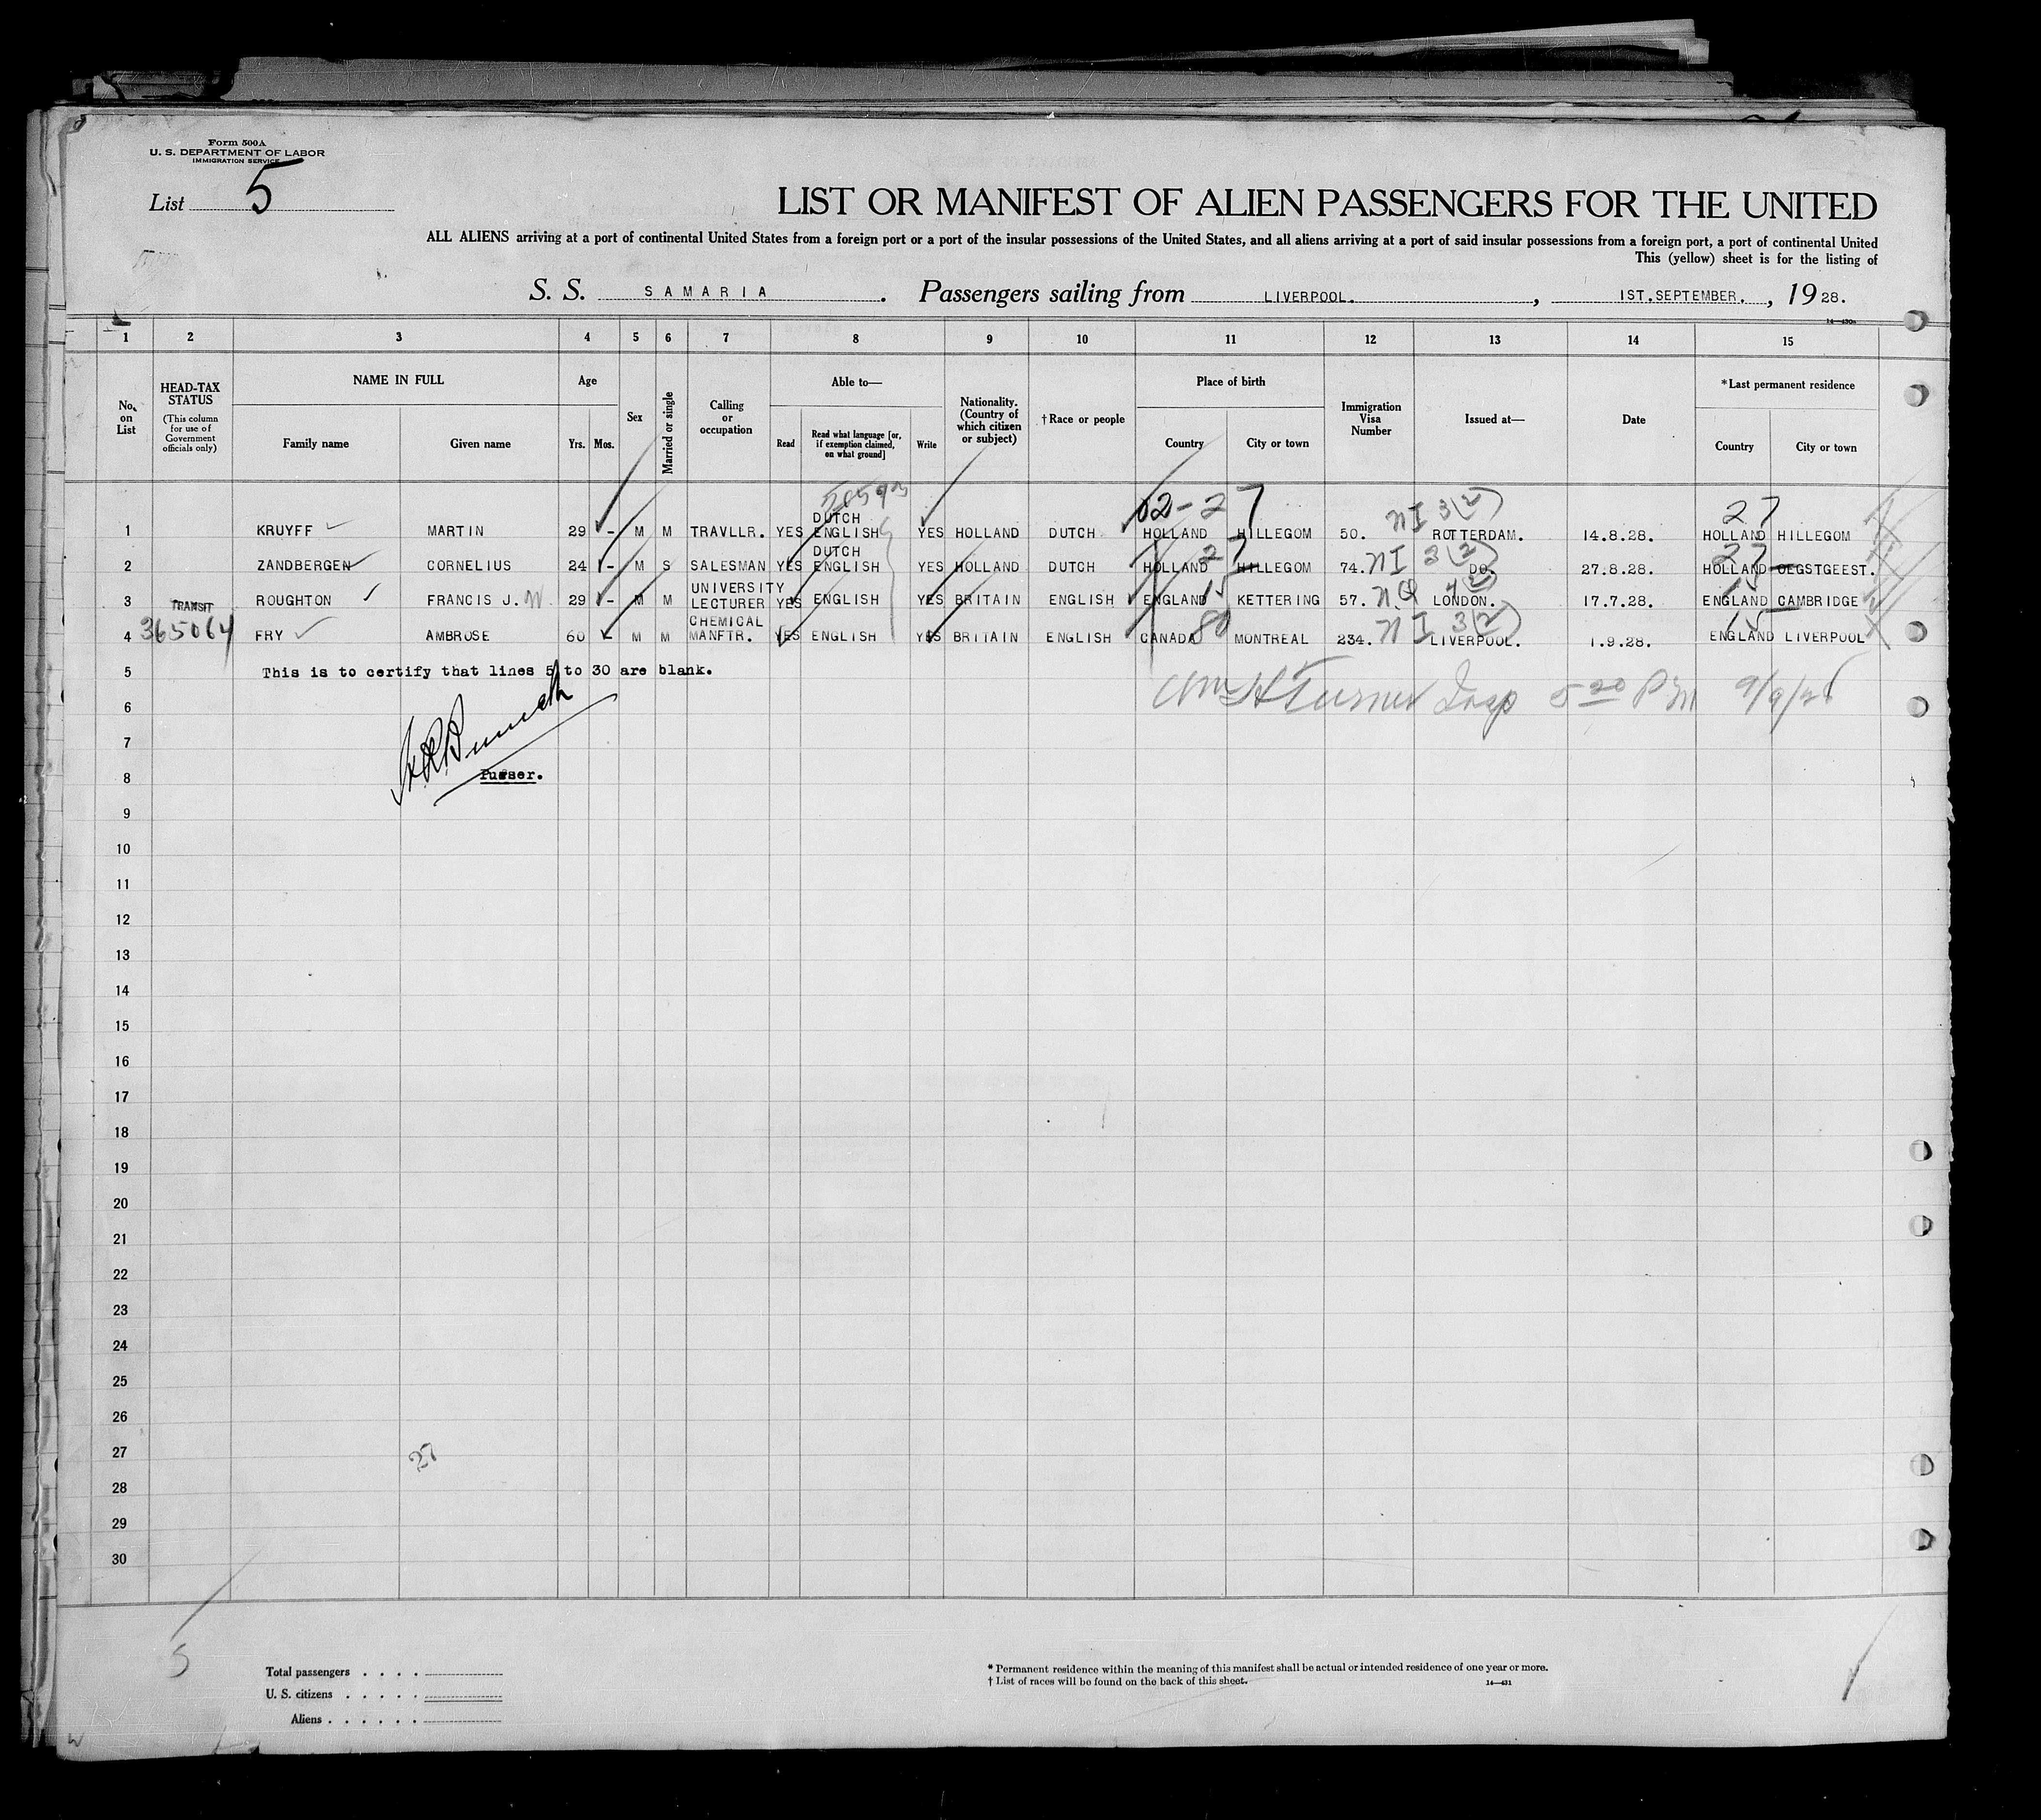 Form 500A
U. S. DEPARTMENT OF LABOR
IMMIGRATION SERVICE
List 5
LIST OR MANIFEST OF ALIEN PASSENGERS FOR THE UNITED
ALL ALIENS arriving at a port of continental United States from a foreign port or a port of the insular possessions of the United States, and all aliens arriving at a port of said insular possessions from a foreign port, a port of continental United
This (yellow) sheet is for the listing of
S. S. SAMARIA. Passengers sailing from LIVERPOOL., 1ST.SEPTEMBER., 1928.
1 2 3 4 5 6 7 8 9 10 11 12 13 14 15
No. on List
HEAD-TAX STATUS
(This column for use of Government officials only)
NAME IN FULL
Family name Given name
Age
Yrs. Mos.
Sex
Married or single
Calling or occupation
Able to—
Read
Read what language [or, if exemption claimed, on what ground]
Write
Nationality. (Country of which citizen or subject)
†Race or people
Place of birth
Country City or town
Immigration Visa Number
Issued at—
Date
*Last permanent residence
Country City or town
02-27 NI 3(2) 27
1 KRUYFF MARTIN 29 - M M TRAVLLR. YES DUTCH ENGLISH YES HOLLAND DUTCH HOLLAND HILLEGOM 50. ROTTERDAM. 14.8.28. HOLLAND HILLEGOM
27 NI 3(2) 27
2 ZANDBERGEN CORNELIUS 24 - M S SALESMAN YES DUTCH ENGLISH YES HOLLAND DUTCH HOLLAND HILLEGOM 74. DO. 27.8.28. HOLLAND OEGSTGEEST.
15 NQ 4(2) 15
3 ROUGHTON FRANCIS J. W 29 - M M UNIVERSITY LECTURER YES ENGLISH YES BRITAIN ENGLISH ENGLAND KETTERING 57. LONDON. 17.7.28. ENGLAND CAMBRIDGE
TRANSIT
365064
80 NI 3(2) 15
4 FRY AMBROSE 60 - M M CHEMICAL MANFTR. YES ENGLISH YES BRITAIN ENGLISH CANADA MONTREAL 234. LIVERPOOL. 1.9.28. ENGLAND LIVERPOOL
5 This is to certify that lines 5 to 30 are blank.
Wm H Turner Insp 5 20 PM 9/9/28
6
7
8 Purser.
9
10
11
12
13
14
15
16
17
18
19
20
21
22
23
24
25
26
27 27
28
29
30
5
Total passengers . . . .
U. S. citizens . . . . .
Aliens . . . . . .
* Permanent residence within the meaning of this manifest shall be actual or intended residence of one year or more.
† List of races will be found on the back of this sheet.
14—431